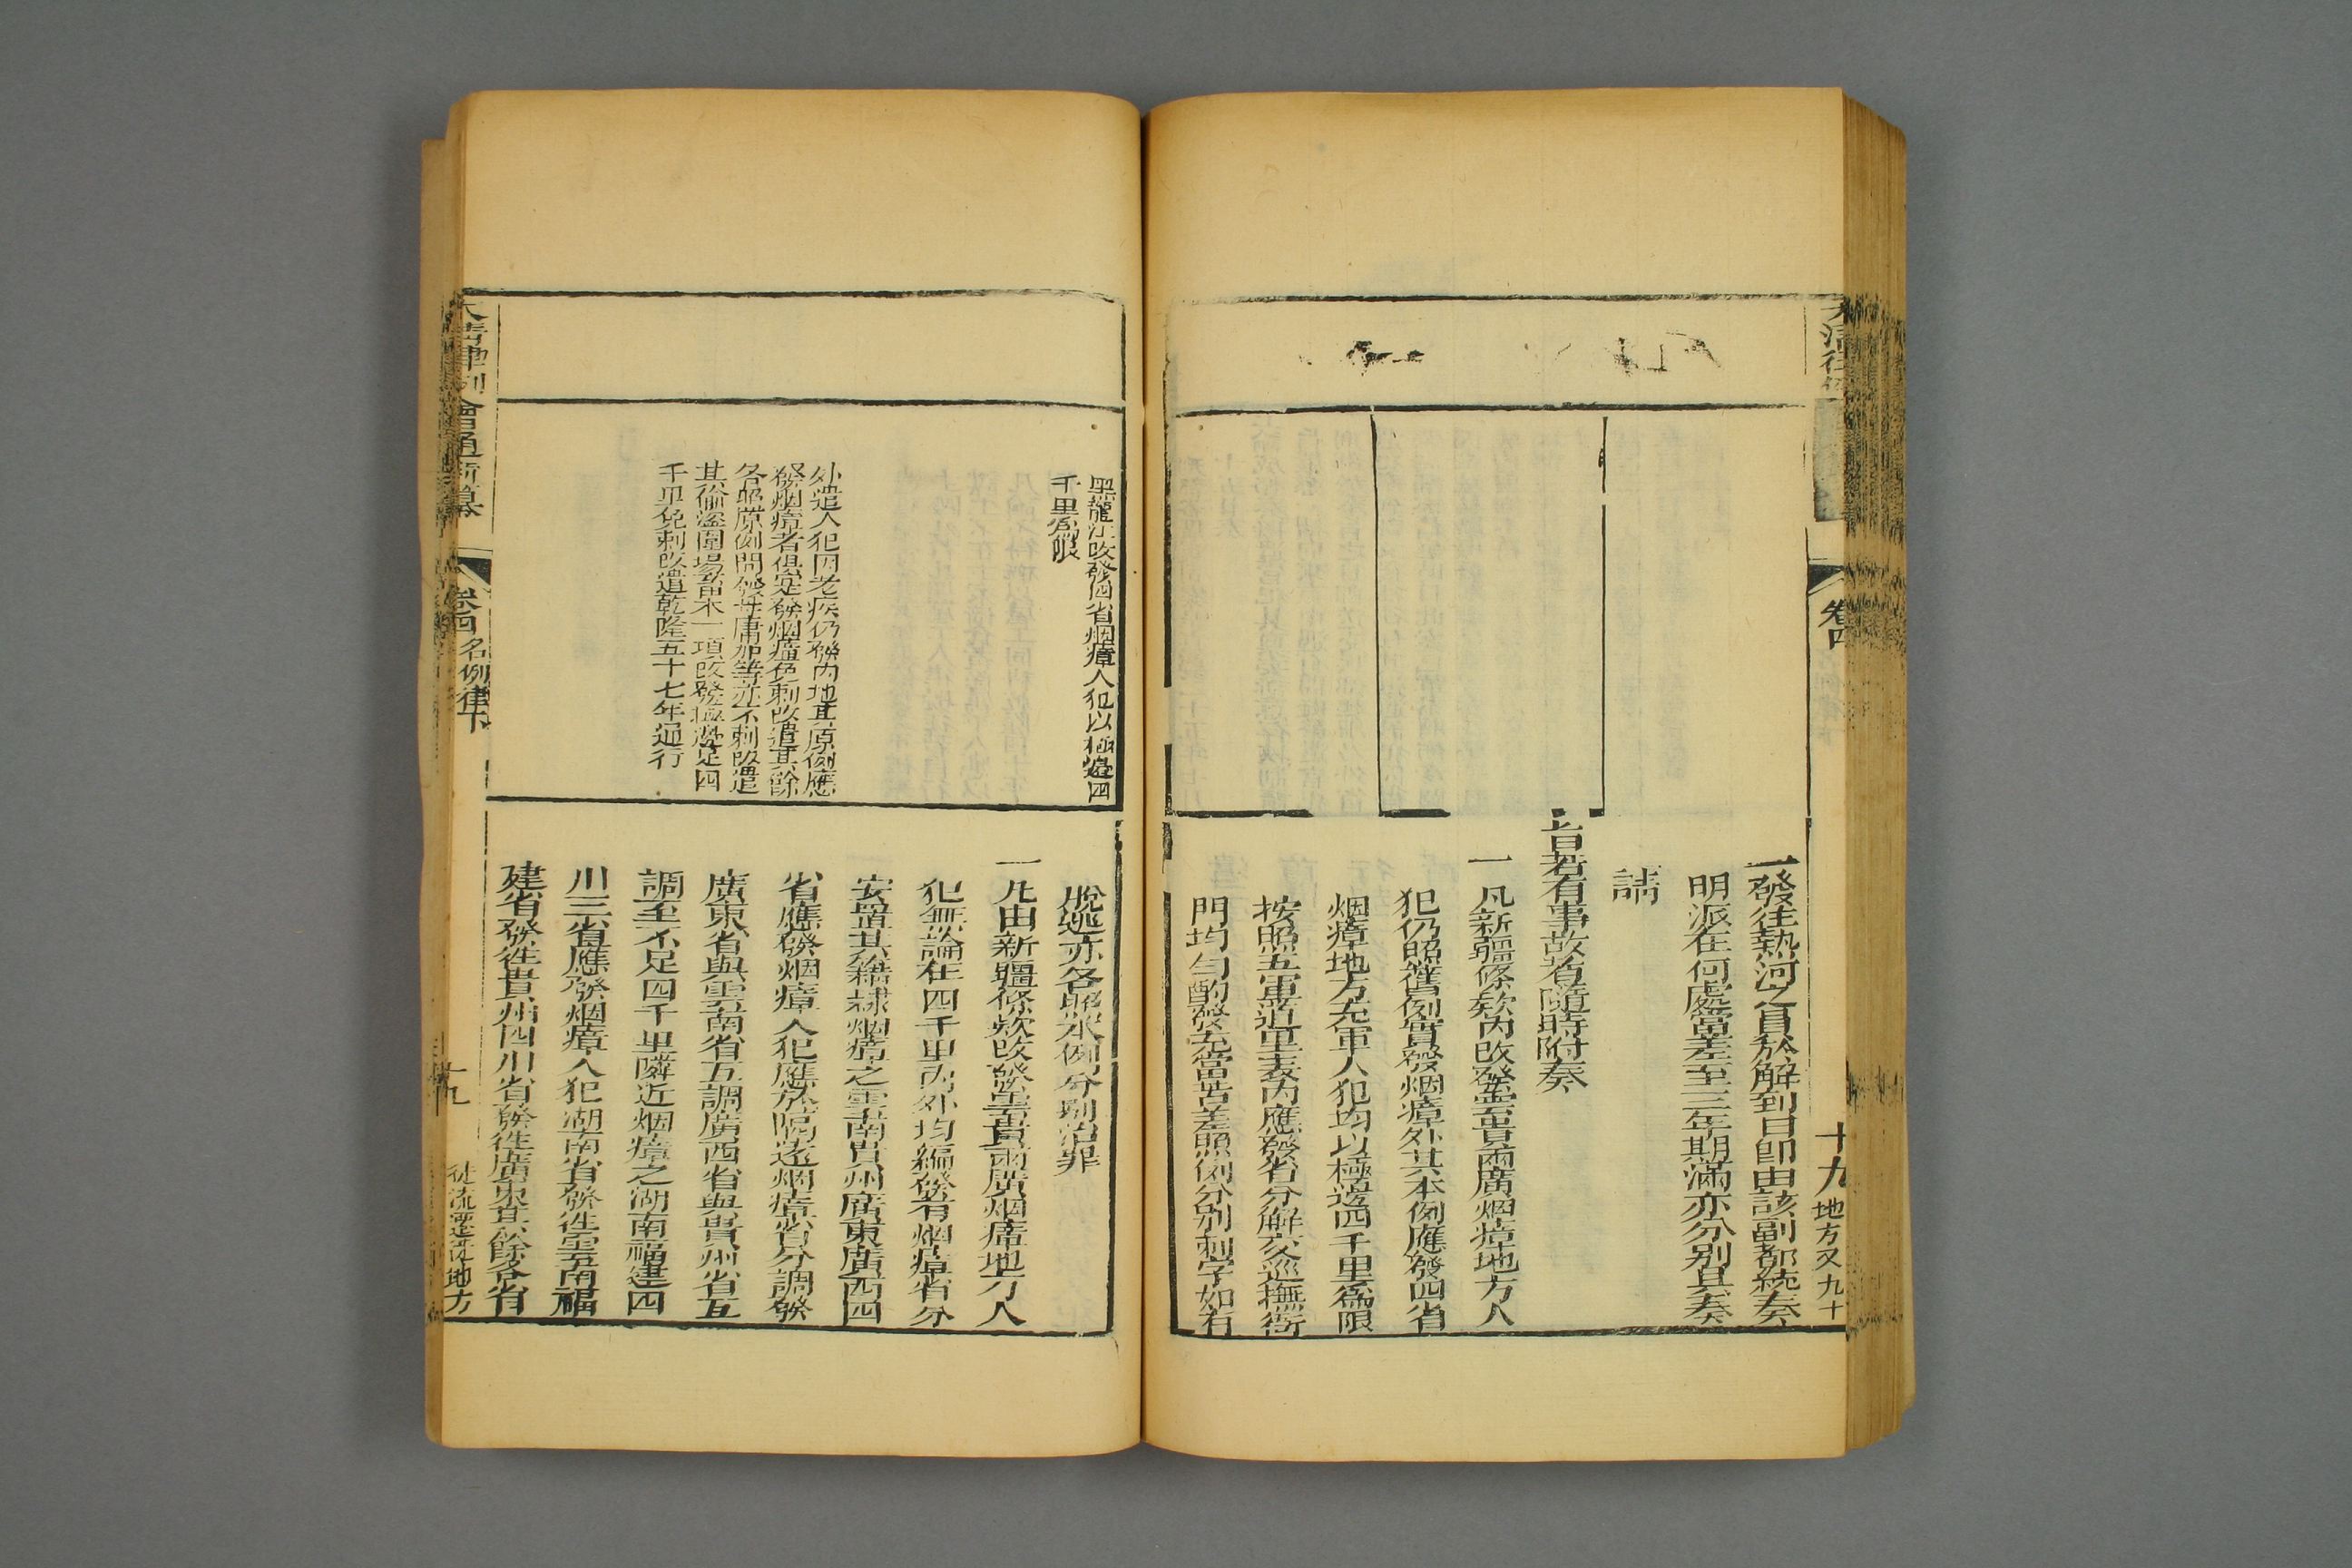 卷四
十九
地方又九十
一發往熱河之員於解到日卽由該副都統奏
明派在何處當差至三年期滿亦分别具奏
請
旨若有事故者隨時附奏
一凡新疆條欵內改發雲貴兩廣烟瘴地方人
犯仍照舊例實發烟瘴外其本例應發四省
烟瘴地方充軍人犯均以極邊四千里爲限
按照五軍道里表內應發省分解交巡撫衙
門均勻酌發充當苦差照例分别刺字如有
黑龍江改發四省烟瘴人犯以極邊四
千里爲限
外遣人犯因老疾仍發內地其原例應
發烟瘴者俱定發烟瘴免刺改遣其餘
各照原例問發毋庸加等亦不刺改遣
其偷盜圍場菜木一項改發極邊足四
千里免刺改遣乾隆五十七年通行
脫逃亦各照本例分别治罪
一凡由新疆條欵改發雲貴兩廣烟瘴地方人
犯無論在四千里內外均編發有烟瘴省分
安置其籍隸烟瘴之雲南貴州廣東廣西四
省應發烟瘴人犯應於隔遠烟瘴省分調發
廣東省與雲南省互調廣西省與貴州省互
調至不足四千里隣近烟瘴之湖南福建四
川三省應發烟瘴人犯湖南省發往雲南福
建省發往貴州四川省發往廣東其餘各省
大清律例會通新纂
卷四
名例律下
十九
徒流遷徙地方